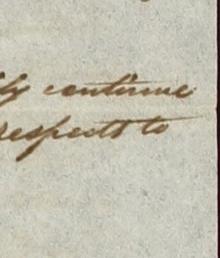 continue
respects to